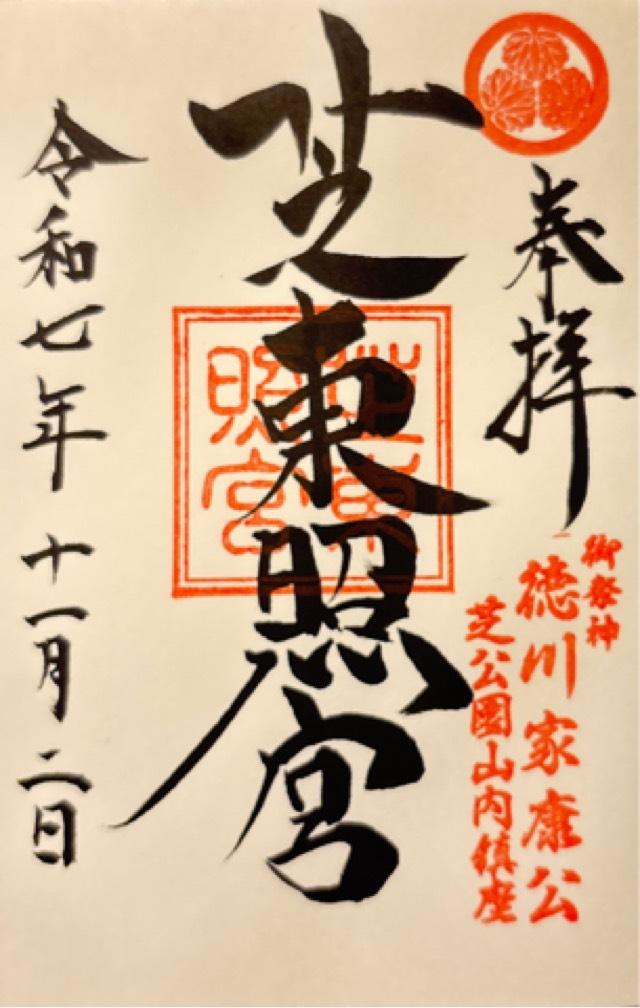 奉拝
御祭神
徳川家康公
芝公園山内鎮座
芝東照宮
芝東
照宮
令和七年十一月二日